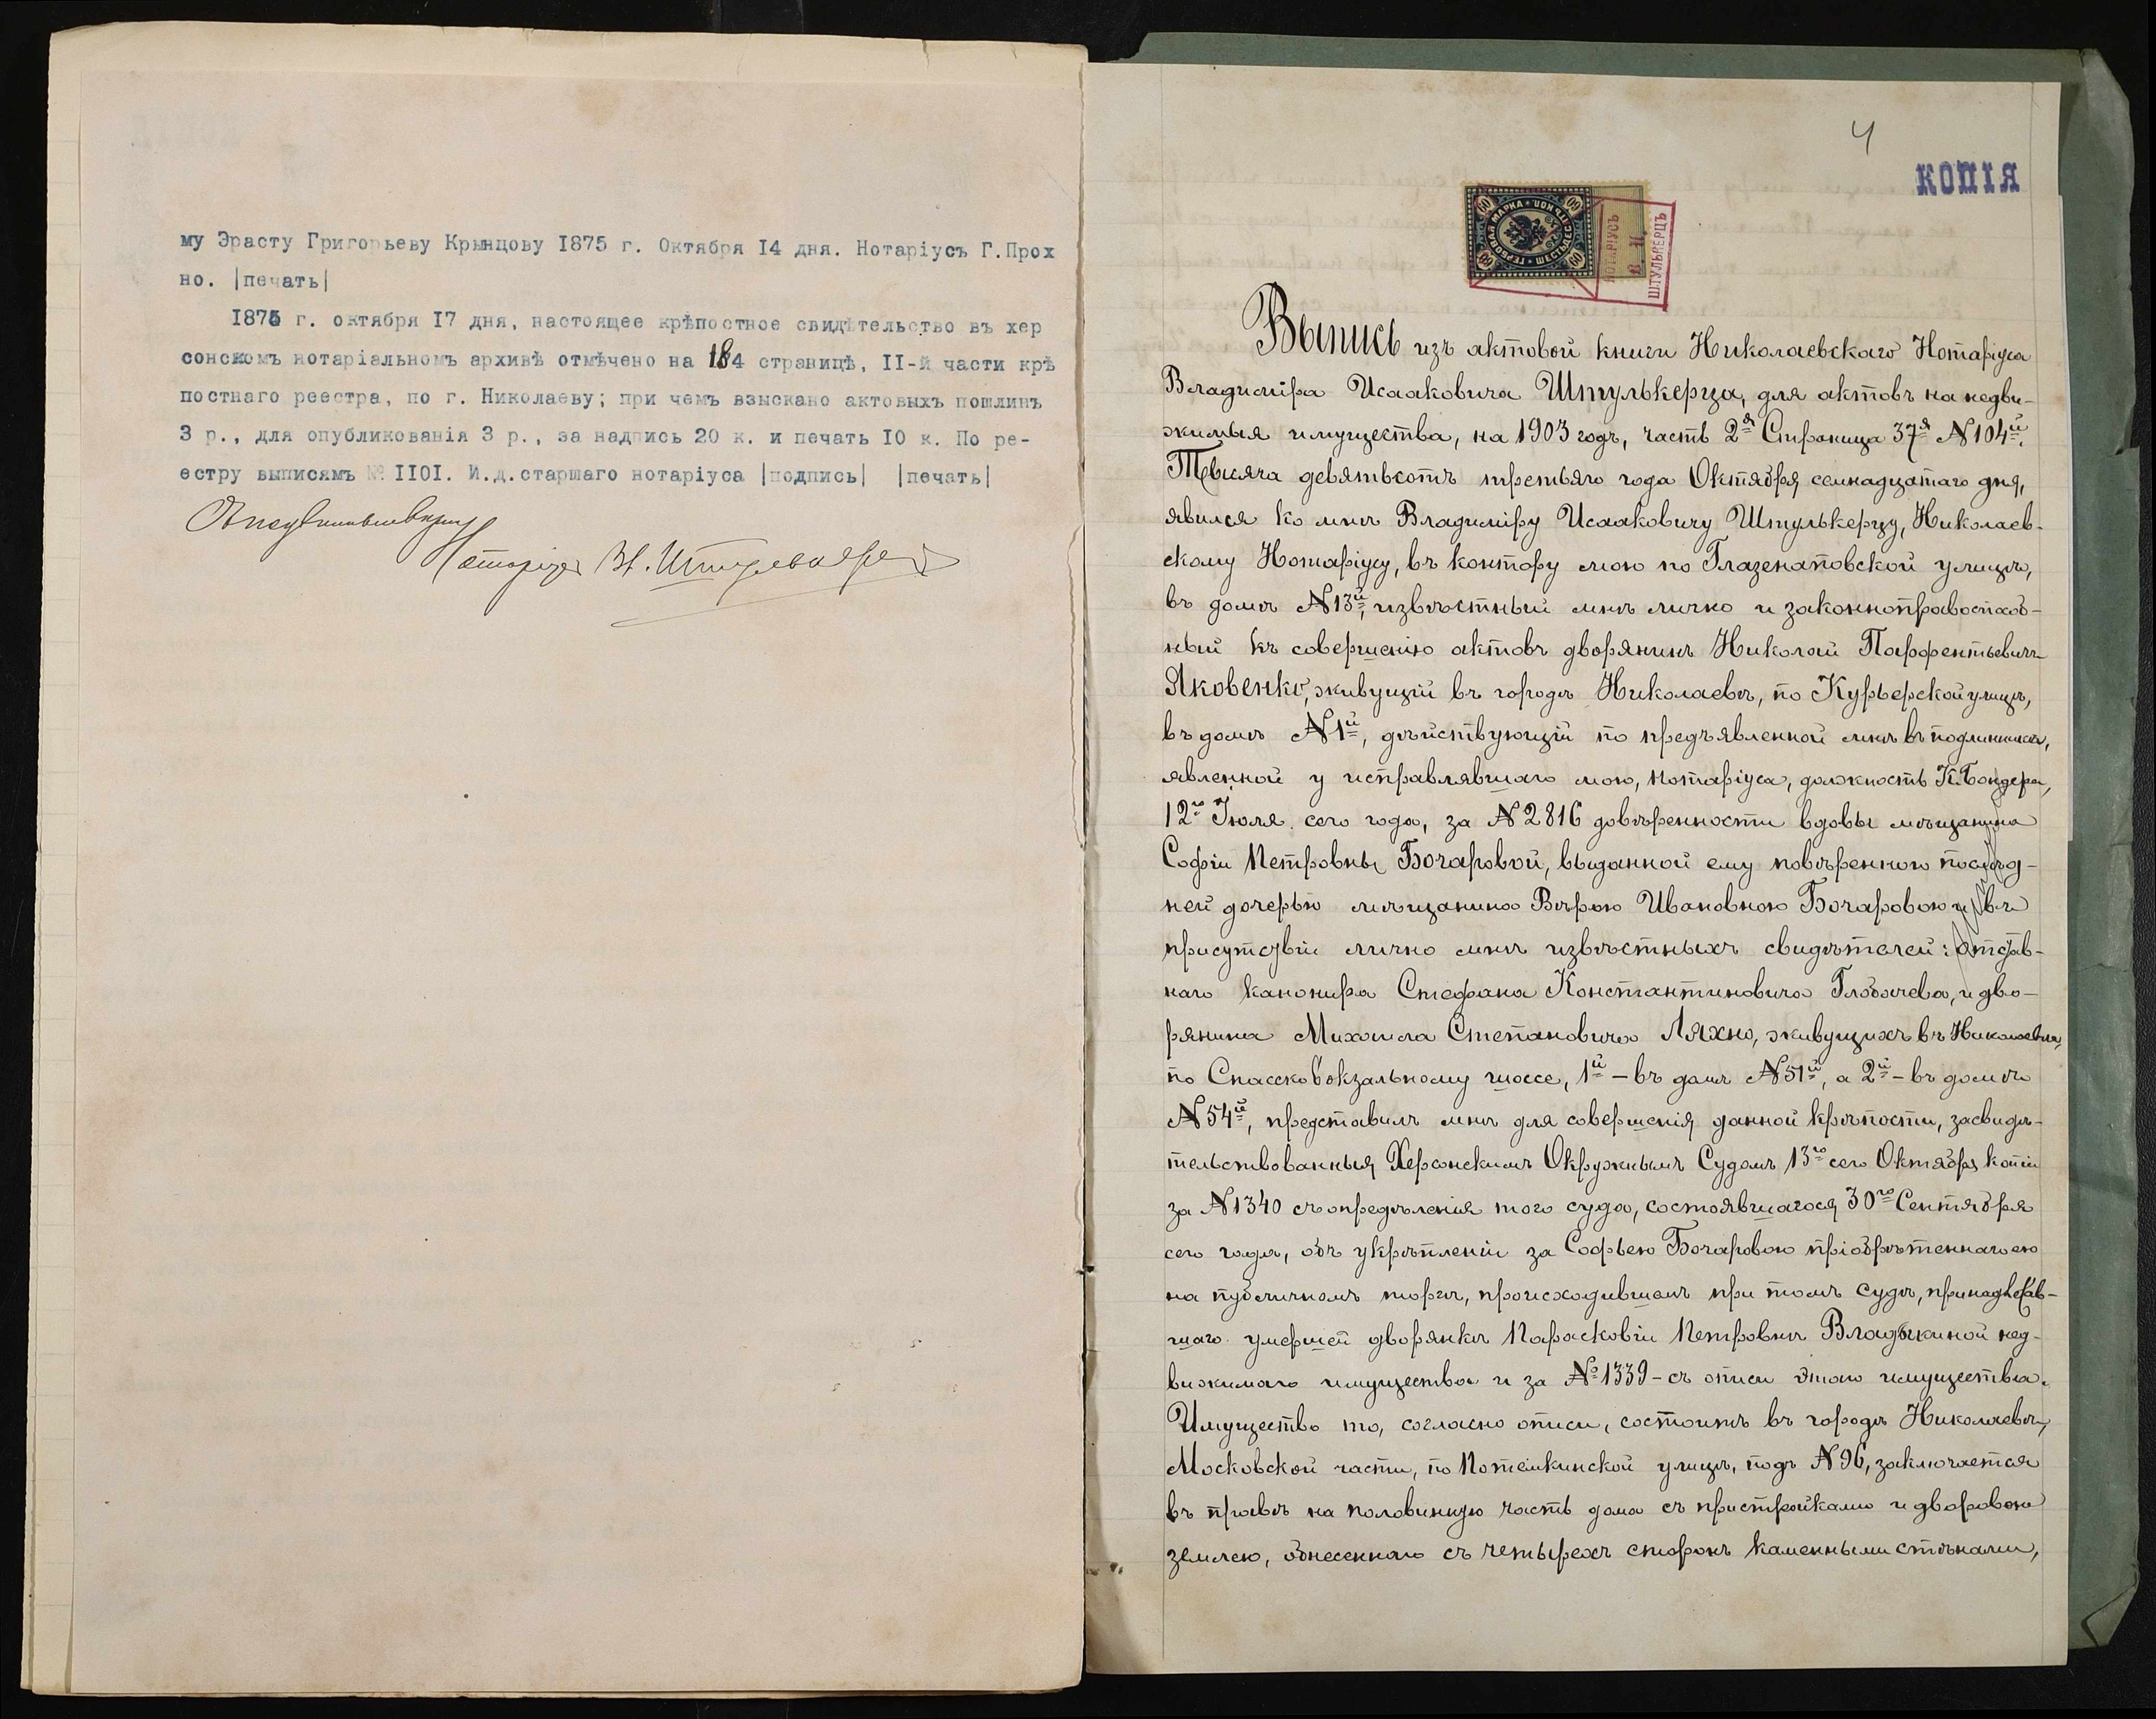 му Эрасту Григорьеву Крынцову 1875 г. Октября 14 дня. Нотаріусъ Г.Прох
но. |печать|
1875 г. октября 17 дня, настоящее крѣпостное свидѣтельство въ хер
сонскомъ нотаріальномъ архивѣ отмѣчено на 184 страницѣ, II-й части крѣ
постнаго реестра, по г. Николаеву; при чемъ взыскано актовыхъ пошлинъ
3 р., для опубликованія 3 р., за надпись 20 к. и печать 10 к. По ре-
естру выписямъ № 1101. И.д.старшаго нотаріуса |подпись| |печать|
Нотаріусъ В.И. Штулькерцъ
4
КОПІЯ
ГЕРБОВАЯ МАРКА ШЕСТЬДЕСЯТЪ КОП.
60 60 60 60
НОТАРІУСЪ
В. И.
ШТУЛЬКЕРЦЪ
Выпись изъ актовой книги Николаевскаго Нотаріуса
Владиміра Исааковича Штулькерца, для актовъ на недви-
жимыя имущества, на 1903 годъ, часть 2я Страница 37я № 104й.
Тысяча девятьсотъ третьяго года Октября семнадцатаго дня,
явился ко мнѣ Владиміру Исааковичу Штулькерцу, Николаев-
скому Нотаріусу, въ контору мою по Глазенаповской улицѣ,
въ домѣ № 13й, извѣстный мнѣ лично и законноправоспособ-
ный къ совершенію актовъ дворянинъ Николай Парфентьевичъ
Яковенко, живущій въ городѣ Николаевѣ, по Курьерской улицѣ,
въ домѣ № 1й, дѣйствующій по предъявленной мнѣ въ подлинникѣ,
явленной у исправлявшаго мою, нотаріуса, должность К. Бондера,
12го Іюля сего года, за № 2816 довѣренности вдовы мѣщанина
Софіи Петровны Бочаровой, выданной ему повѣренною послѣд-
ней дочерью мѣщанина Вѣрою Ивановною Бочаровою и въ
присутствіи лично мнѣ извѣстныхъ свидѣтелей: отстав-
наго канонира Стефана Константиновича Глобачева, и дво-
рянина Михаила Степановича Ляхно, живущихъ въ Николаевѣ,
по Спасско Вокзальному шоссе, 1й – въ домѣ № 51й, а 2й – въ домѣ
№ 54й, представилъ мнѣ для совершенія данной крѣпости, засвидѣ-
тельствованныя Херсонскимъ Окружнымъ Судомъ 13го сего Октября копіи
за № 1340 съ опредѣленія того суда, состоявшагося 30го Сентября
сего года, объ укрѣпленіи за Софьею Бочаровою пріобрѣтеннаго ею
на публичномъ торгѣ, происходившемъ при томъ судѣ, принадлежав-
шаго умершей дворянкѣ Парасковіи Петровнѣ Владыкиной нед-
вижимаго имущества и за № 1339 – съ описи этого имущества.
Имущество то, согласно описи, состоитъ въ городѣ Николаевѣ,
Московской части, по Потемкинской улицѣ, подъ № 96, заключается
въ правѣ на половинную часть дома съ пристройками и дворовою
землею, обнесеннаго съ четырехъ сторонъ каменными стѣнами,